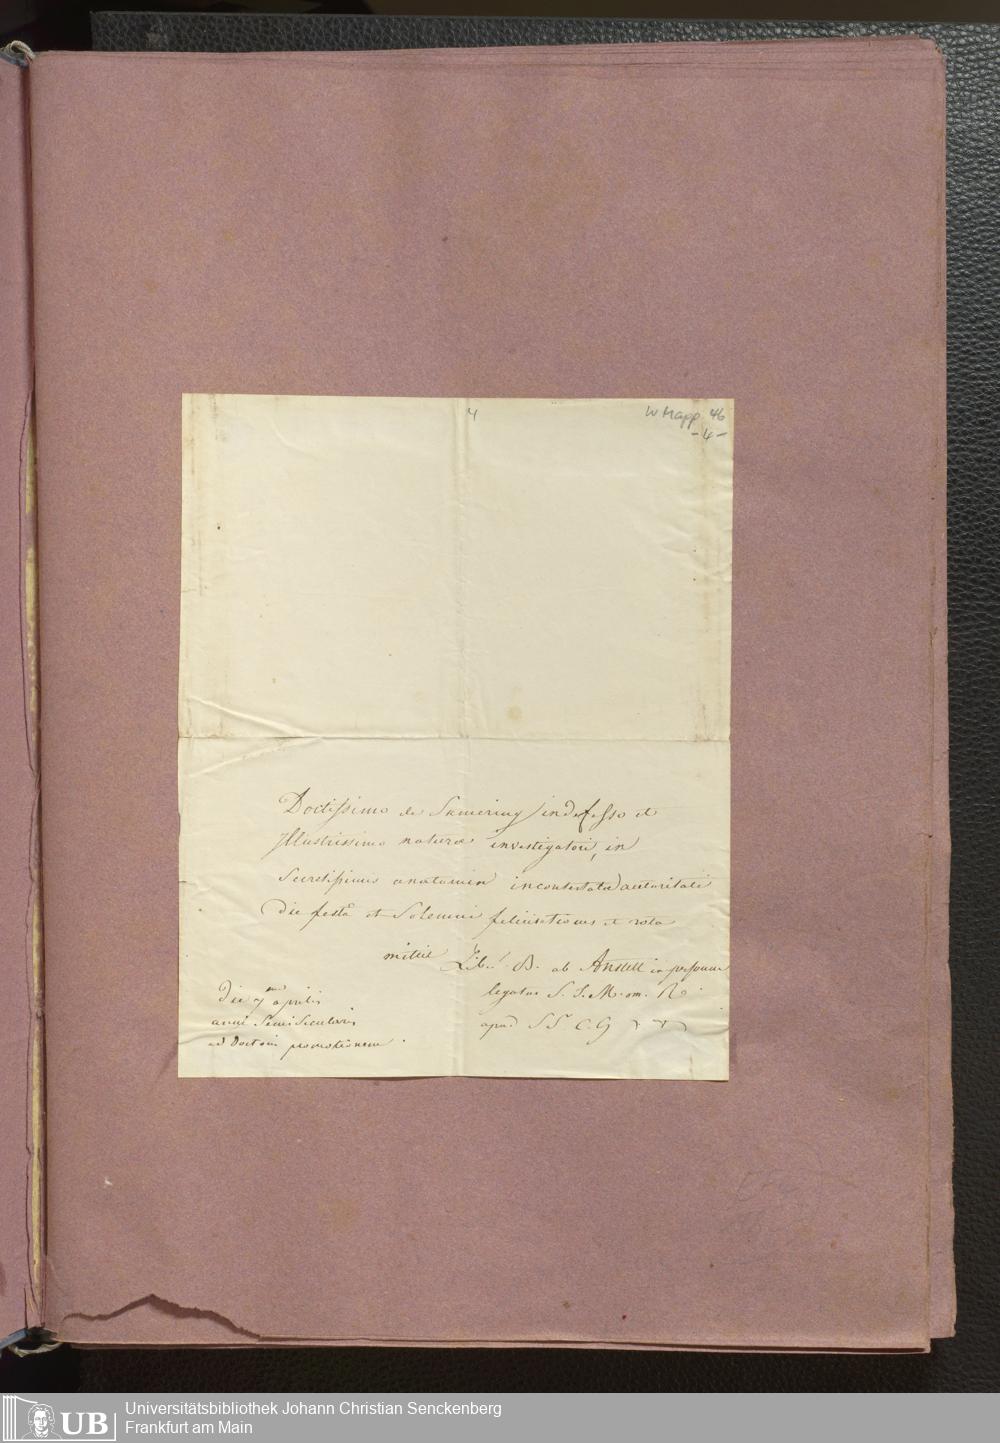 4
W Mapp 46
- 4 -
Doctissimo de Sömering indefesso et
Illustrissimo naturæ investigatori, in
Secretissimis anatomiæ autoritati
die festa et Solemni felicitationes et vota
mittit Lib: B. ab Anstett
legatus S. I. M. om. R.
apud S S C. G
Die 7 aprilis
anni Semisecularis
ad Doctoris promotionem.
UB
Universitätsbibliothek Johann Christian Senckenberg
Frankfurt am Main